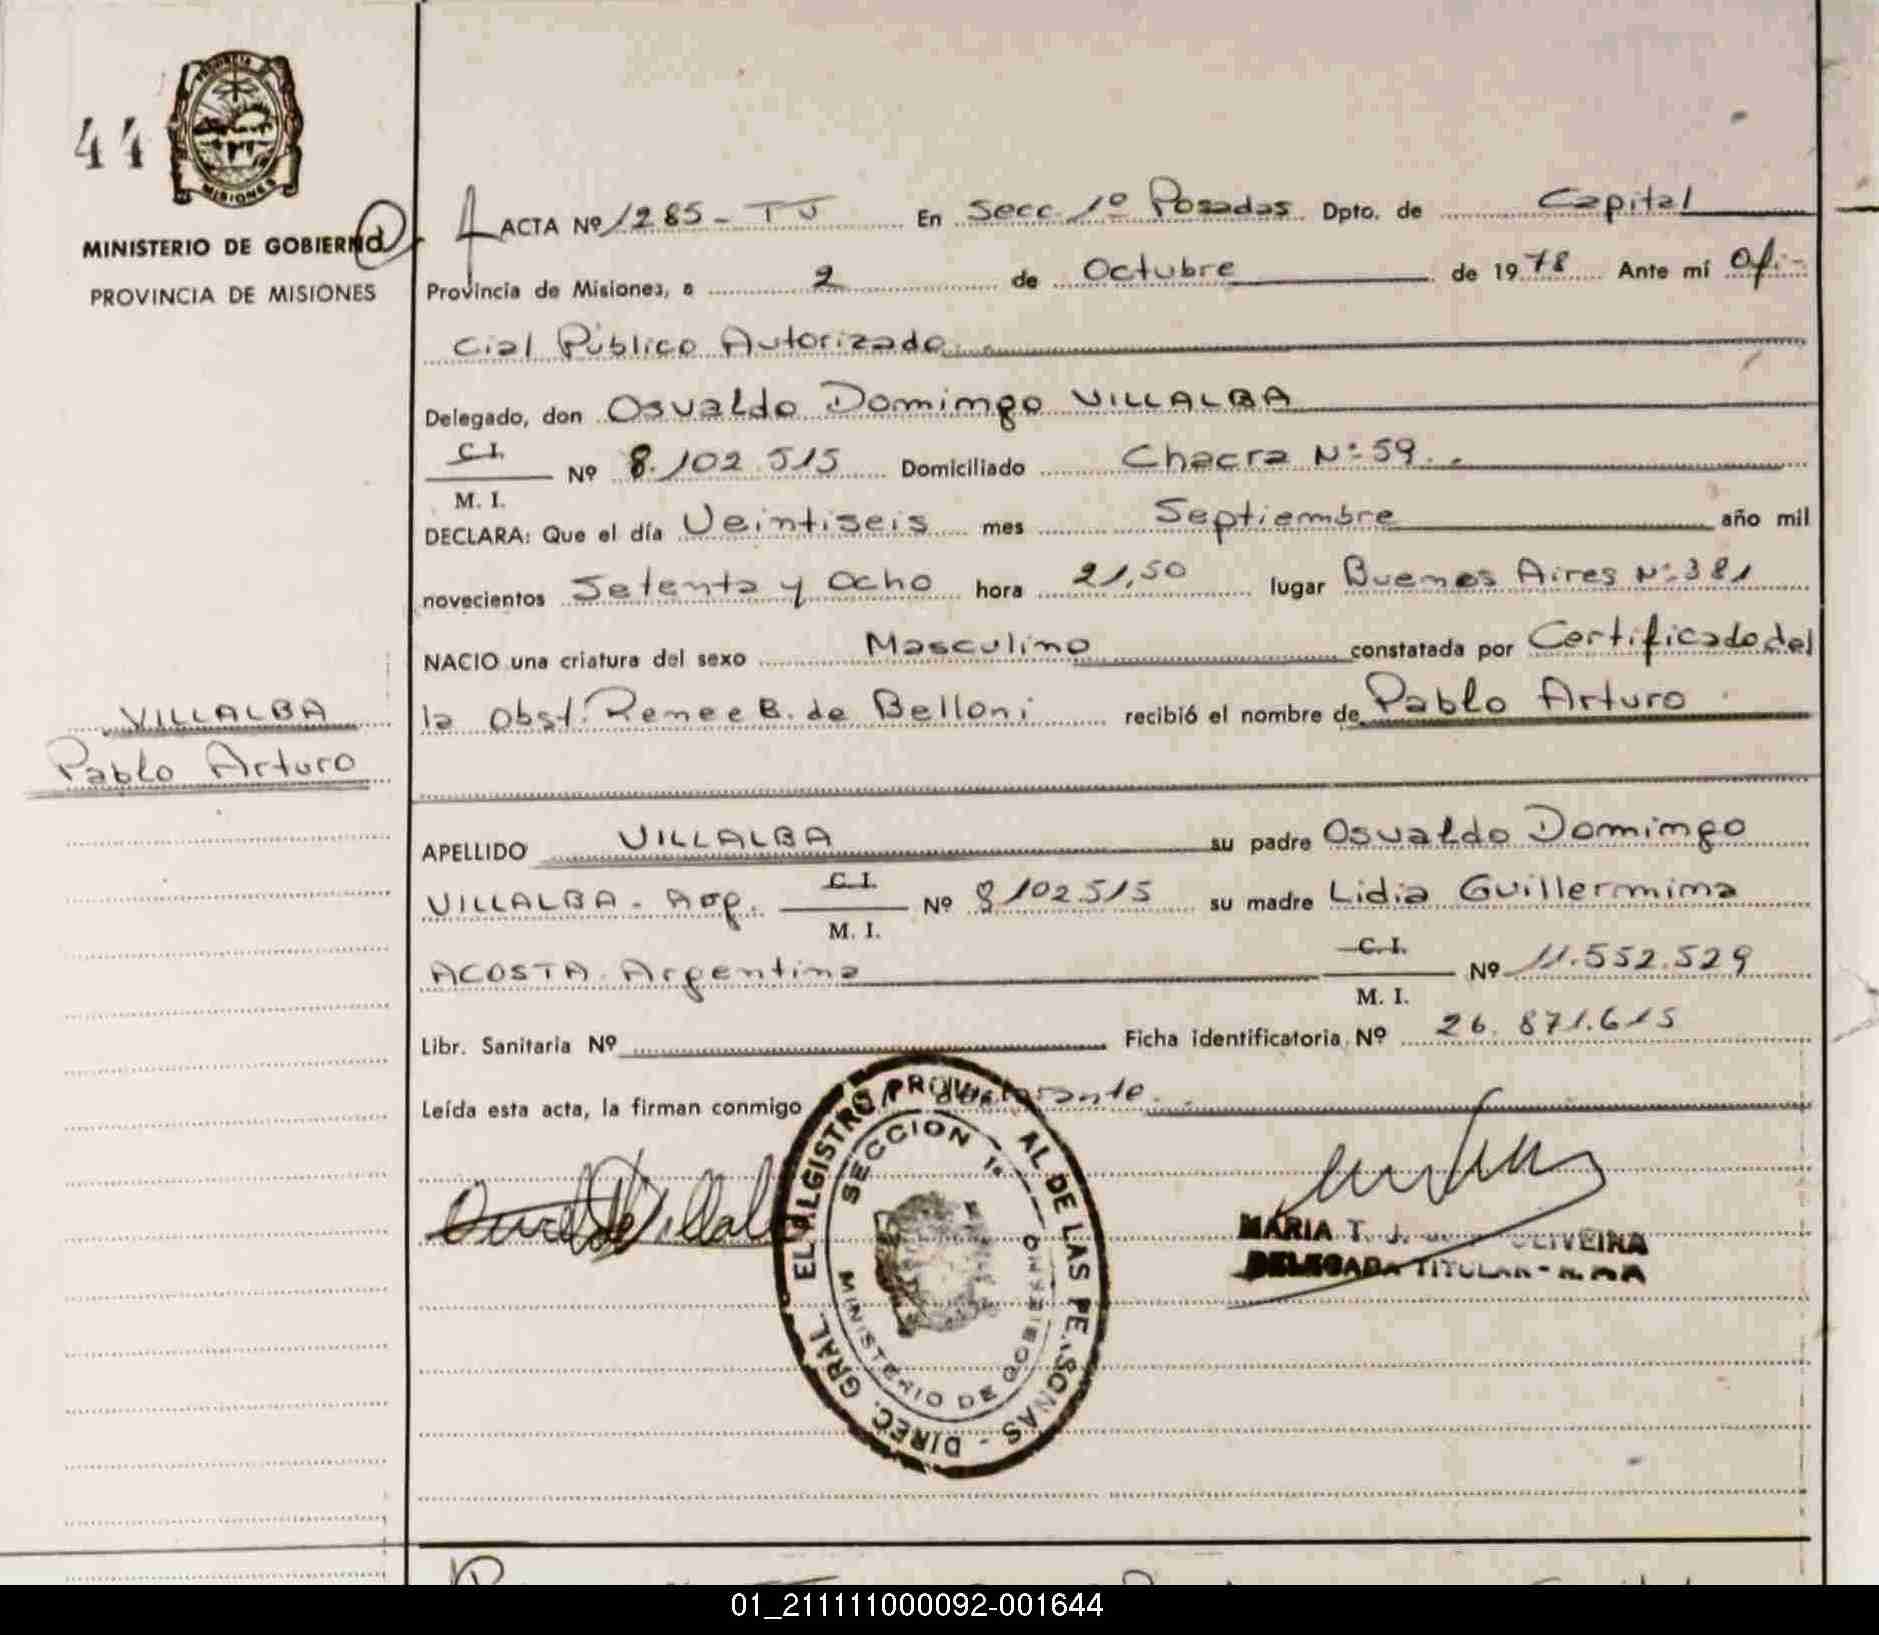 44
PROVINCIA DE
MISIONES
MINISTERIO DE GOBIERNO
PROVINCIA DE MISIONES
VILLALBA
Pablo Arturo
ACTA Nº 1285 - TJ En Secc. 1º Posadas Dpto. de Capital
Provincia de Misiones, a 2 de Octubre de 1978 Ante mí Ofi-
cial Público Autorizado
Delegado, don Osvaldo Domingo VILLALBA
C. I.
M. I. Nº 8.102.515 Domiciliado Chacra Nº 59.
DECLARA: Que el día Veintiseis mes Septiembre año mil
novecientos Setenta y Ocho hora 21,50 lugar Buenos Aires Nº 381
NACIO una criatura del sexo Masculino constatada por Certificado de
la Obst. Renee B. de Belloni recibió el nombre de Pablo Arturo
APELLIDO VILLALBA su padre Osvaldo Domingo
VILLALBA - Arg. C. I.
M. I. Nº 8.102.515 su madre Lidia Guillermina
ACOSTA. Argentina C. I.
M. I. Nº 11.552.529
Libr. Sanitaria Nº Ficha identificatoria Nº 26.871.615
Leída esta acta, la firman conmigo
DIREC. GRAL. PROVIN AL DE LAS PE SONAS
SECCION 1ª
MINISTERIO DE GOBIERNO
MARIA T. J. OLIVEIRA
DELEGADA TITULAR
01_211111000092-001644